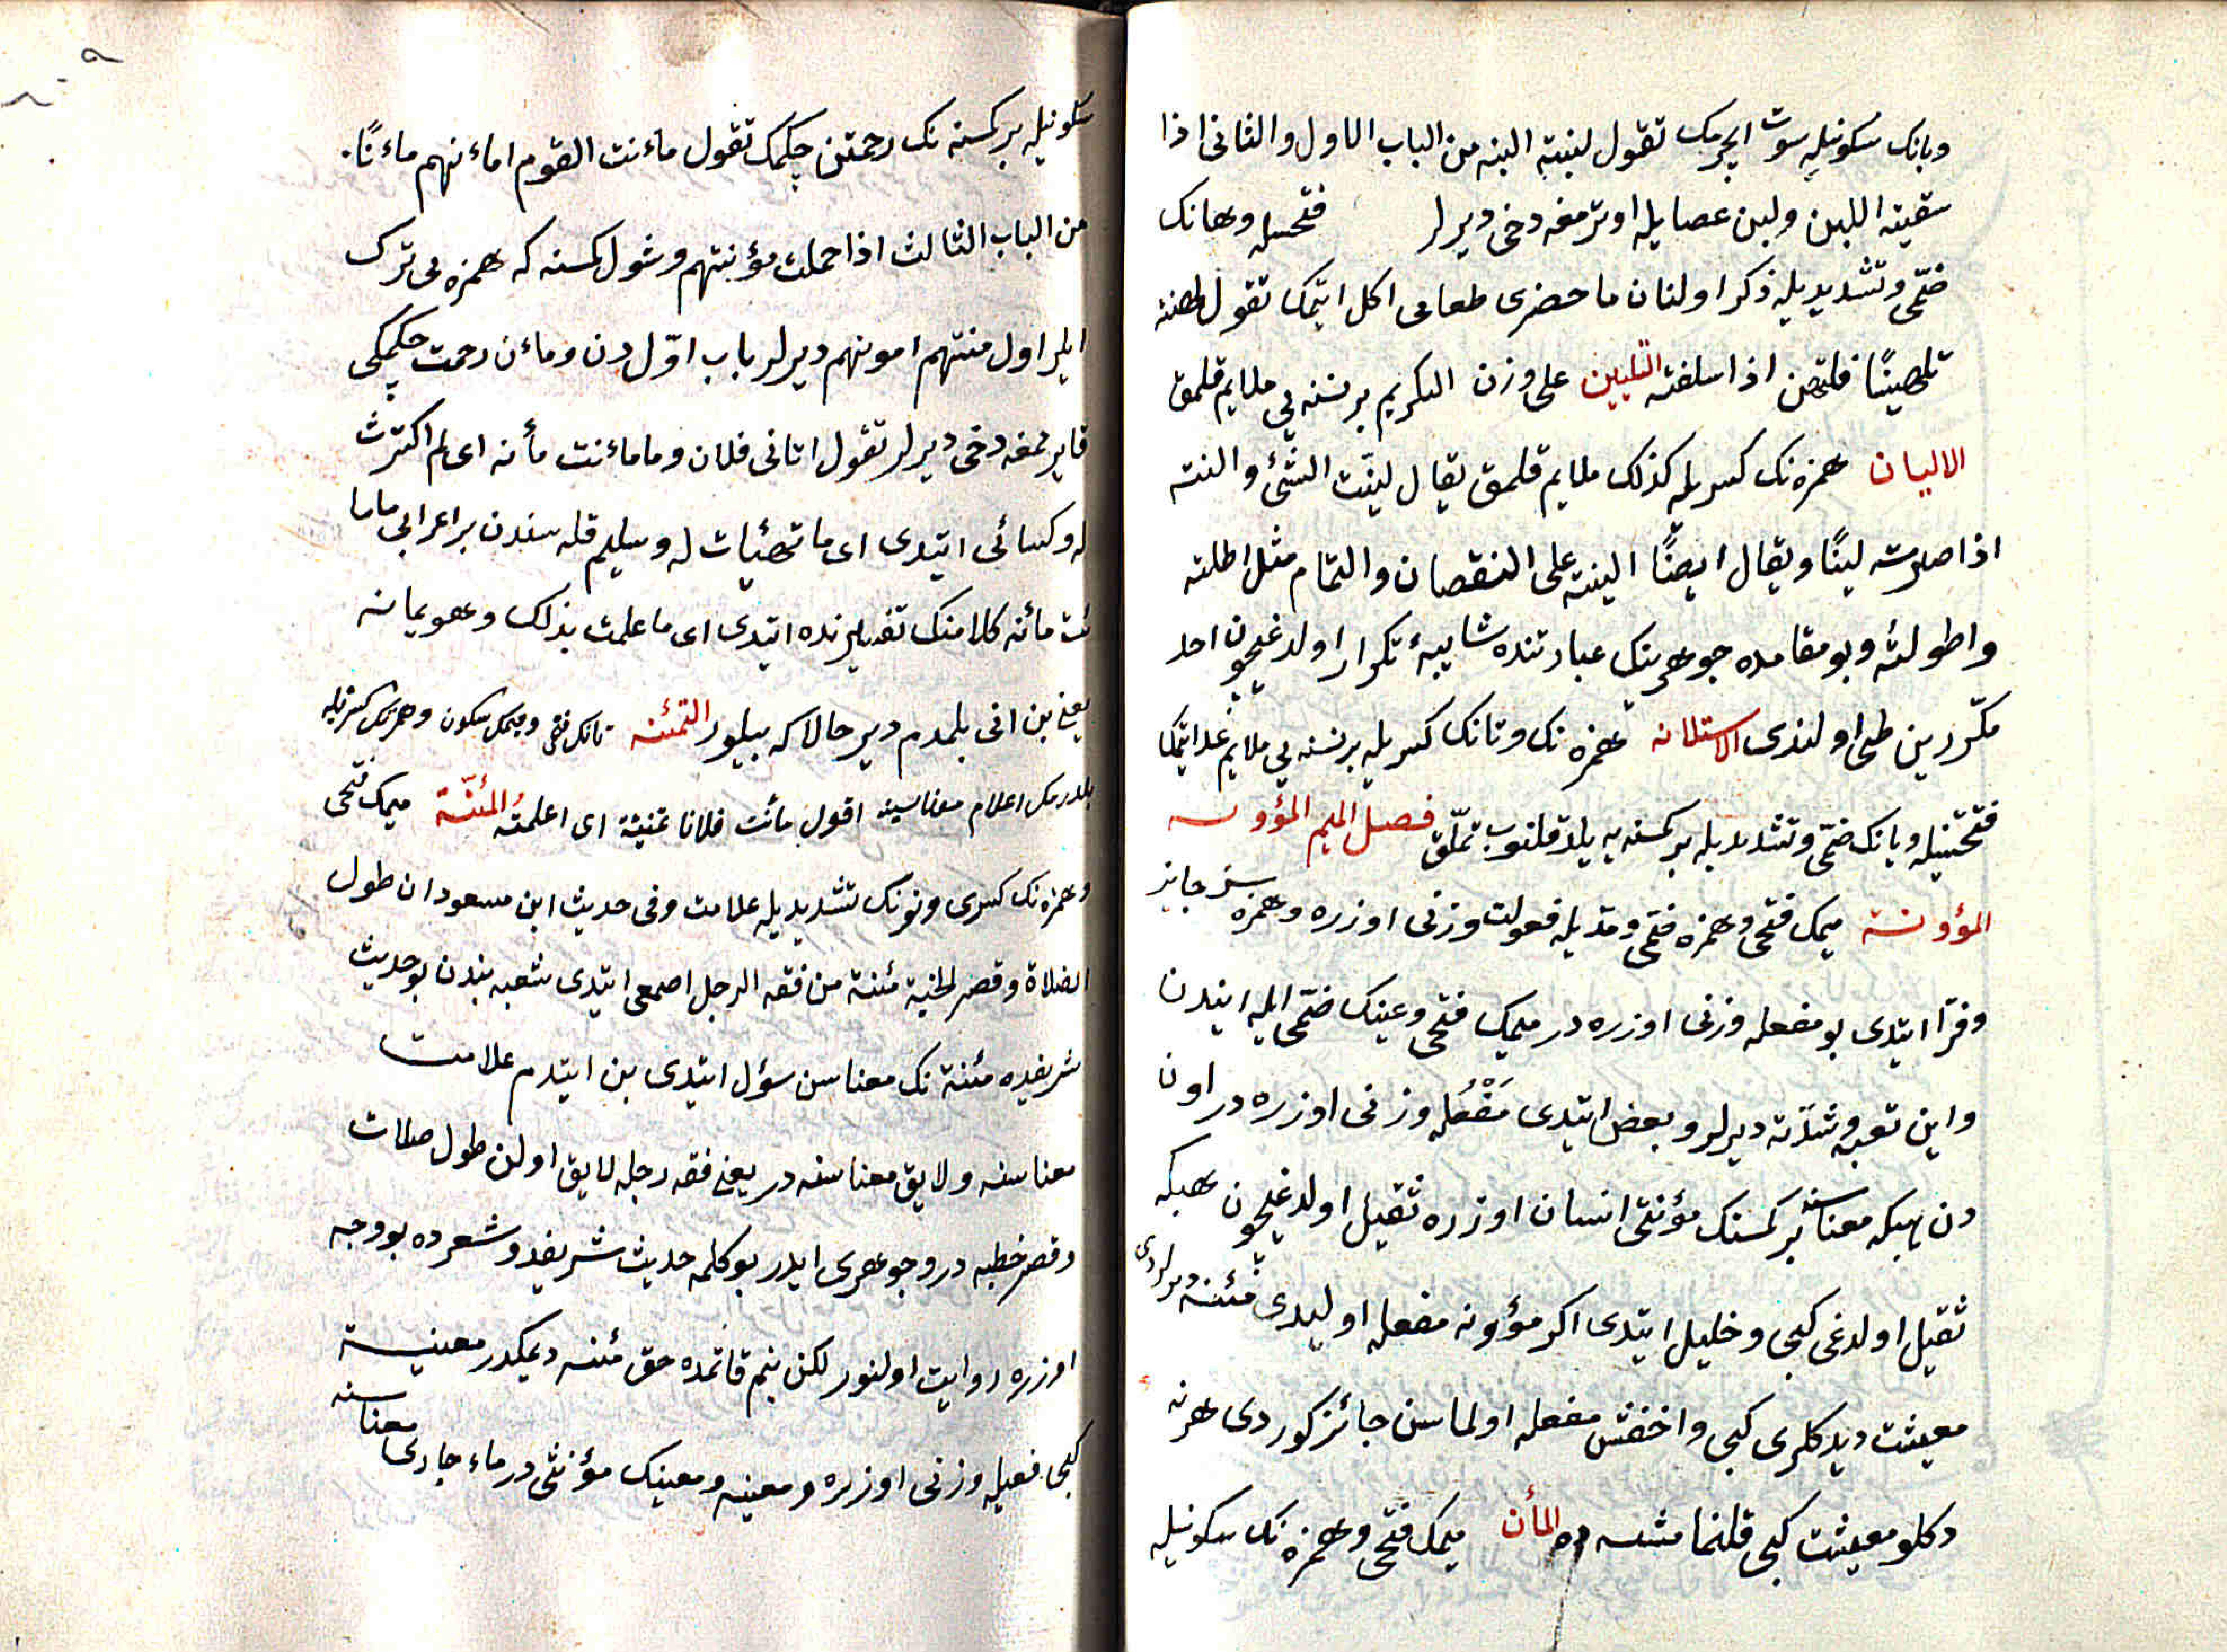 وبانك سكونيله سوت ایچرمك تقول لبنته البنه من الباب الاول والثانی اذا
سقیته اللبن ولبن عصایله اوترمغه دخی دیرلر فتحیله وهانك
ضمّی وتشدیدیله ذكر اولنان ما حضری طعامی اكل ایتمك تقول لهنته
تلهینًا فتلهن اذا سلفته التلیین علی وزن التكریم برنسنه یی ملایم قلمق
الالیان همزه نك كسریله كذلك ملایم قلمق یقال لیّنت الشئ والنته
اذا صیرته لینًا ویقال ایضًا الینته علی النقصان والتمام مثل اطلته
واطولته وبو مقامده جوهرینك عبارتنده شایبهٔ تكرار اولدغیچون احد
مكرّرین طی اولندی الاستلانه همزه نك وتانك كسریله برنسنه یی ملایم عد ایتمك
فتحتیله ویانك ضمّی وتشدیدیله بركسنه یه یلاقلنوب تملّق فصل المیم المؤونه
المؤونة میمك فتحی وهمزه ضمّی ومدیله فعولت وزنی اوزره وهمزه سز جایز
وفرّا ایتدی بو مفعله وزنی اوزره در میمك فتحی وعینك ضمّی ایله ایندن
واین تعبه وشدّته دیرلر وبعض ایتدی مَفْعُله وزنی اوزره در اون
دن هبكه معناسنه بركسنك مؤنتی انسان اوزره ثقیل اولدغیچون هبكه
ثقیل اولدغی كبی وخلیل ایتدی اكر مؤونه مفعله اولیدی مئنه دیرلردی
معیشت دیدكلری كبی واخفش مفعله اولماسن جائز كوردی هرنه
دكلو معیشت كبی قلنمامشسه ده المأن میمك فتحی وهمزه نك سكونیله
سكونیله بركسنه نك رحمتن چكمك تقول مأنت القوم امأنهم مأنًا
من الباب الثالث اذا حملت مؤنتهم وشول كسنه كه همزه یی ترك
ایلر اول منتهم امونهم دیرلر باب اوّل دن ومأن رحمت چكمكی
قایرمغه دخی دیرلر تقول اتانی فلان وما مأنت مأنه ای لم اكترث
له وكسائی ایتدی ای ما تهیأت له وسلیم قبله سندن بر اعرابی ما ما
نت مأنه كلامنك تفسیرنده ایتدی ای ما علمت بذلك وهو یمانه
یعنی بن انی بلمدم دیر حالا كه بیلور التمئنه تانك فتحی ومیمك سكون وهمزنك كسرتیله
بلدرمك اعلام معناسینه اقول مأنت فلانا تمئنة ای اعلمته المئنّة میمك فتحی
وهمزه نك كسری ونونك تشدیدیله علامت وفی حدیث ابن مسعود ان طول
الصلاة وقصر الخطبة مئنة من فقه الرجل اصمعی ایتدی شعبه بندن بو حدیث
شریفده مئنة نك معناسن سؤل ایتدی بن ایتدم علامت
معناسنه ولایق معناسنه در یعنی فقه رجله لایق اولن طول صلات
وقصر خطبه در وجوهری ایدر بو كلمه حدیث شریفده وشعرده بو وجه
اوزره روایت اولنور لكن بنم قاتمده حق مئنه دیمكدر معنیة
كبی فعیله وزنی اوزره ومعینه ومعینك مؤنثی در ماء جاری معناسنه